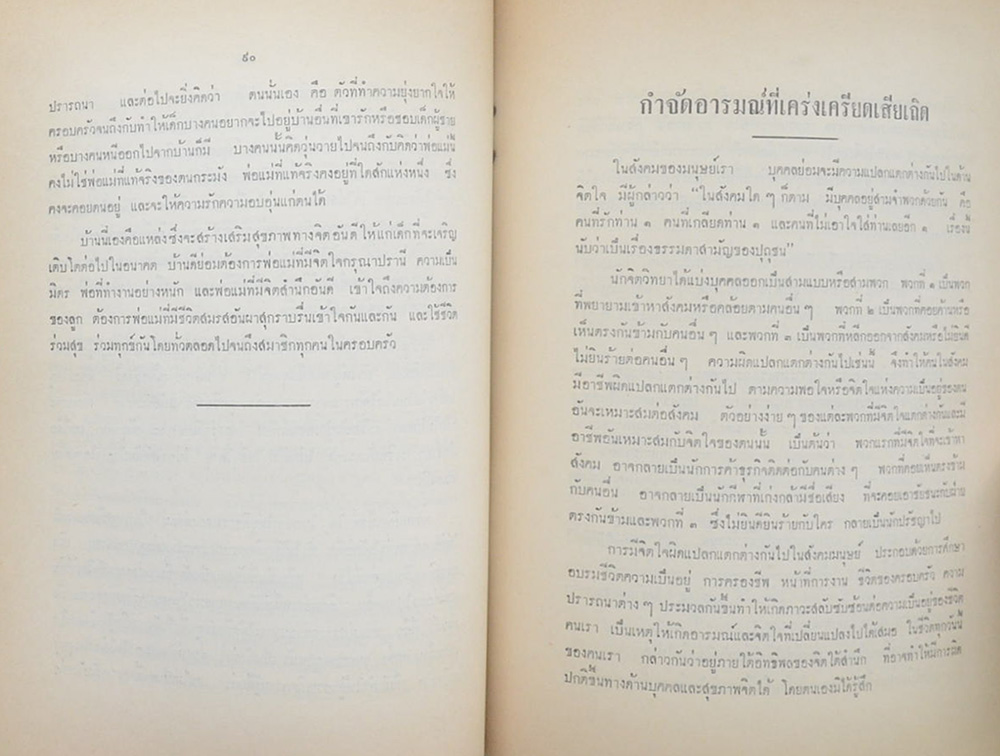 ๙๐
ปรารถนา และต่อไปจะยิ่งคิดว่า ตนนั่นเอง คือ ตัวที่ทำความยุ่งยากใจให้
ครอบครัวจนถึงกับทำให้เด็กบางคนอยากจะไปอยู่บ้านอื่นที่เขารักหรือชอบเด็กผู้ชาย
หรือบางคนหนีออกไปจากบ้านก็มี บางคนนั้นคิดวุ่นวายไปจนถึงกับคิดว่าพ่อแม่นี้
คงไม่ใช่พ่อแม่ที่แท้จริงของตนกระมัง พ่อแม่ที่แท้จริงคงอยู่ที่ใดสักแห่งหนึ่ง ซึ่ง
คงจะคอยตนอยู่ และจะให้ความรักความอบอุ่นแก่ตนได้
บ้านนี้เองคือแหล่งซึ่งจะสร้างเสริมสุขภาพทางจิตอันดีให้แก่เด็กที่จะเจริญ
เติบโตต่อไปในอนาคต บ้านดีย่อมต้องการพ่อแม่ที่มีจิตใจกรุณาปรานี ความเป็น
มิตร พ่อที่ทำงานอย่างหนัก และพ่อแม่ที่มีจิตสำนึกอันดี เข้าใจถึงความต้องการ
ของลูก ต้องการพ่อแม่ที่มีชีวิตสมรสอันผาสุกราบรื่นเข้าใจกันและกัน และใช้ชีวิต
ร่วมสุข ร่วมทุกข์กันโดยทั่วตลอดไปจนถึงสมาชิกทุกคนในครอบครัว
กำจัดอารมณ์ที่เคร่งเครียดเสียเถิด
ในสังคมของมนุษย์เรา บุคคลย่อมจะมีความแปลกแตกต่างกันไปในด้าน
จิตใจ มีผู้กล่าวว่า “ในสังคมใด ๆ ก็ตาม มีบุคคลอยู่สามจำพวกด้วยกัน คือ
คนที่รักท่าน ๑ คนที่เกลียดท่าน ๑ และคนที่ไม่เอาใจใส่ท่านเลยอีก ๑ เรื่องนี้
นับว่าเป็นเรื่องธรรมดาสามัญของปุถุชน”
นักจิตวิทยาได้แบ่งบุคคลออกเป็นสามแบบหรือสามพวก พวกที่ ๑ เป็นพวก
ที่พยายามเข้าหาสังคมหรือคล้อยตามคนอื่น ๆ พวกที่ ๒ เป็นพวกที่คอยค้านหรือ
เห็นตรงกันข้ามกับคนอื่น ๆ และพวกที่ ๓ เป็นพวกที่หลีกออกจากสังคมหรือไม่ยินดี
ไม่ยินร้ายต่อคนอื่น ๆ ความผิดแปลกแตกต่างกันไปเช่นนี้ จึงทำให้คนในสังคม
มีอาชีพผิดแปลกแตกต่างกันไป ตามความพอใจหรือจิตใจแห่งความเป็นอยู่ของตน
อันจะเหมาะสมต่อสังคม ตัวอย่างง่าย ๆ ของแต่ละพวกที่มีจิตใจแตกต่างกันและมี
อาชีพอันเหมาะสมกับจิตใจของตนนั้น เป็นต้นว่า พวกแรกที่มีจิตใจที่จะเข้าหา
สังคม อาจกลายเป็นนักการค้าธุรกิจติดต่อกับคนต่าง ๆ พวกที่คอยเห็นตรงข้าม
กับคนอื่น อาจกลายเป็นนักกีฬาที่เก่งกล้ามีชื่อเสียง ที่จะคอยเอาชัยชนะกับฝ่าย
ตรงกันข้ามและพวกที่ ๓ ซึ่งไม่ยินดียินร้ายกับใคร กลายเป็นนักปรัชญาไป
การมีจิตใจผิดแปลกแตกต่างกันไปในสังคมมนุษย์ ประกอบด้วยการศึกษา
อบรมชีวิตความเป็นอยู่ การครองชีพ หน้าที่การงาน ชีวิตของครอบครัว ความ
ปรารถนาต่าง ๆ ประมวลกันขึ้นทำให้เกิดภาวะสลับซับซ้อนต่อความเป็นอยู่ของชีวิต
คนเรา เป็นเหตุให้เกิดอารมณ์และจิตใจที่เปลี่ยนแปลงไปได้เสมอ ในชีวิตทุกวันนี้
ของคนเรา กล่าวกันว่าอยู่ภายใต้อิทธิพลของจิตใต้สำนึก ที่อาจทำให้มีการผิด
ปกติขึ้นทางด้านบุคคลและสุขภาพจิตได้ โดยตนเองมิได้รู้สึก